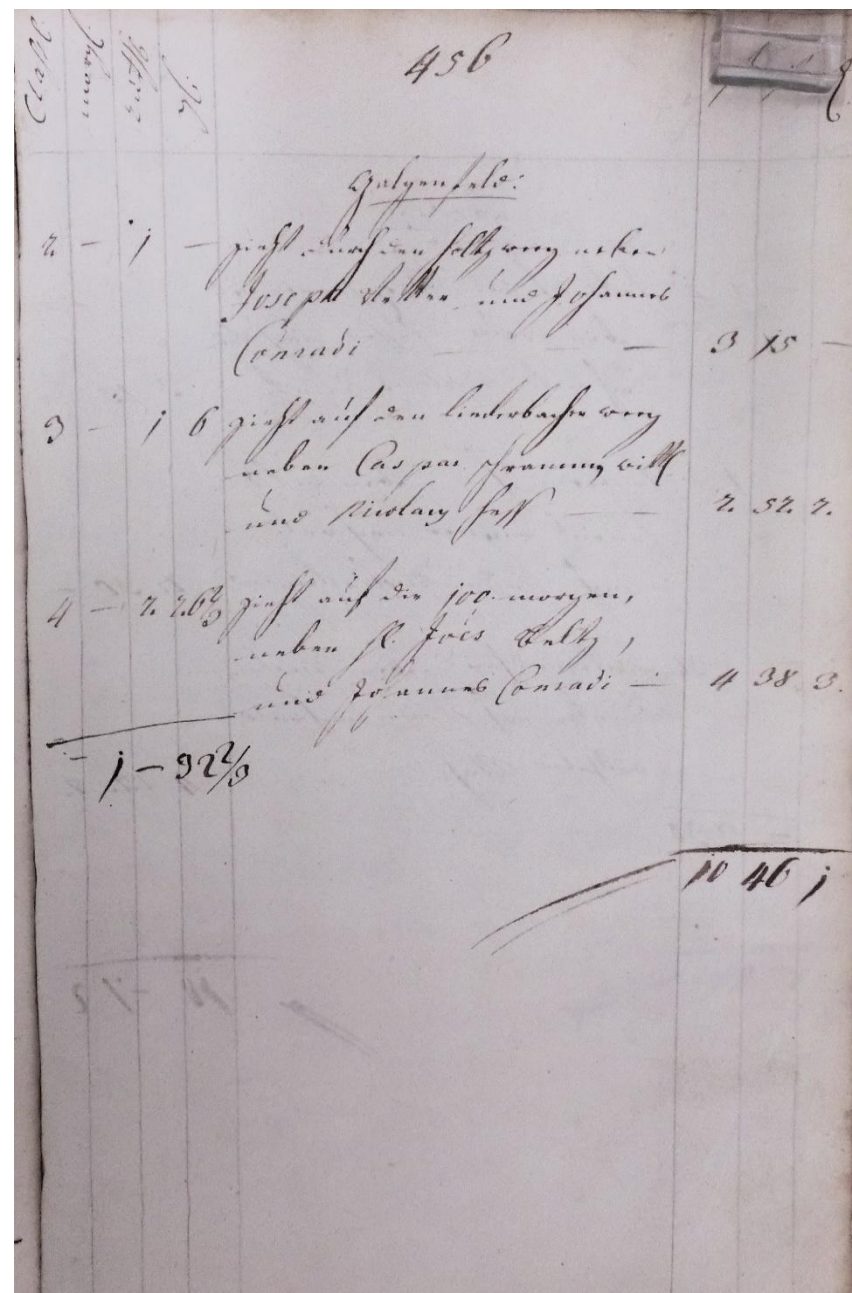 456
Class
Galgenfeld:
2 — 1 — zieht durch den holtzweeg neben
Joseph und Johannes
Conradi — — — 3 15 —
3 — 1 6 zieht auf den liederbacher weeg
neben Caspar schramms witt
und Nicolaus heß — — 2. 52. 2.
4 — 2. 2.6 2/3 zieht auf die 100. morgen,
neben H. Joes Veltz,
und Johannes Conradi — 4 38 3.
— 1 — 32 2/3
10 46 1